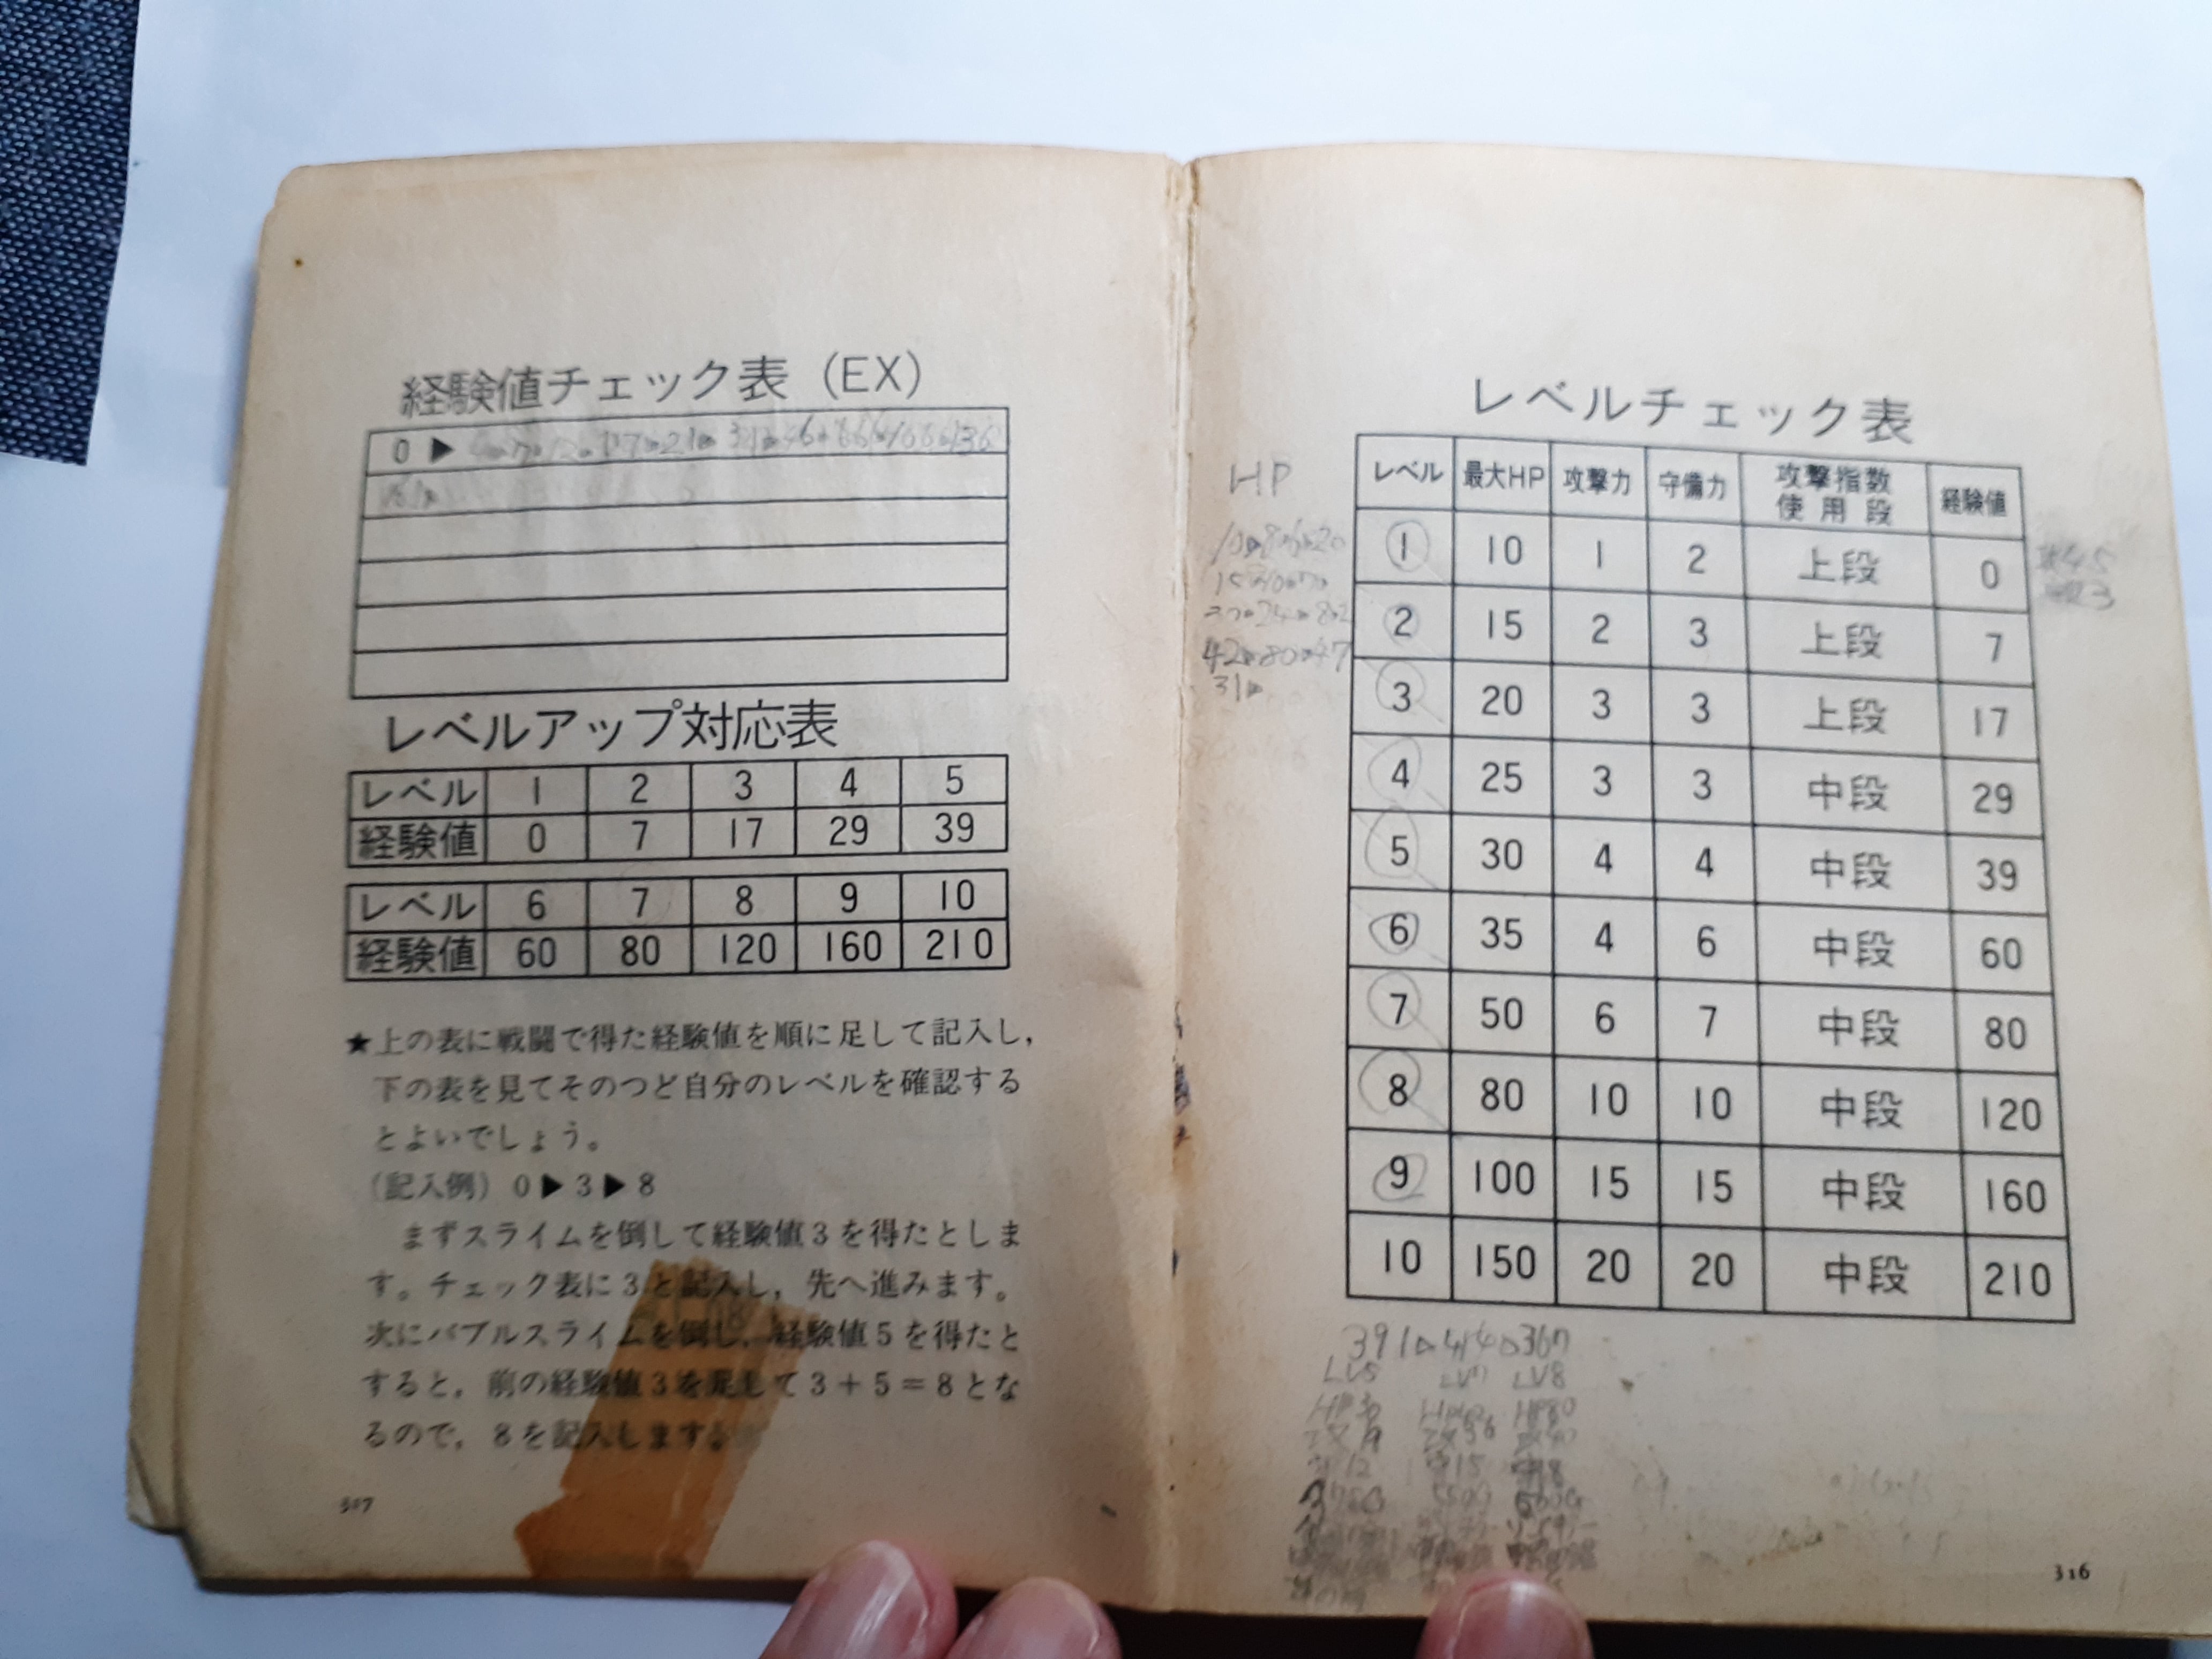 経験値チェック表（EX）
0▶
レベルアップ対応表
レベル 1 2 3 4 5
経験値 0 7 17 29 39
レベル 6 7 8 9 10
経験値 60 80 120 160 210
★上の表に戦闘で得た経験値を順に足して記入し，
下の表を見てそのつど自分のレベルを確認する
とよいでしょう。
（記入例）0▶3▶8
まずスライムを倒して経験値3を得たとしま
す。チェック表に3と記入し，先へ進みます。
次にバブルスライムを倒し，経験値5を得たと
すると，前の経験値3を足して3＋5＝8とな
るので，8を記入します。
307
レベルチェック表
レベル 最大HP 攻撃力 守備力 攻撃指数使用段 経験値
1 10 1 2 上段 0
2 15 2 3 上段 7
3 20 3 3 上段 17
4 25 3 3 中段 29
5 30 4 4 中段 39
6 35 4 6 中段 60
7 50 6 7 中段 80
8 80 10 10 中段 120
9 100 15 15 中段 160
10 150 20 20 中段 210
HP
42▶80▶47
31▶
391▷414▷367
LV5 LV7 LV8
316